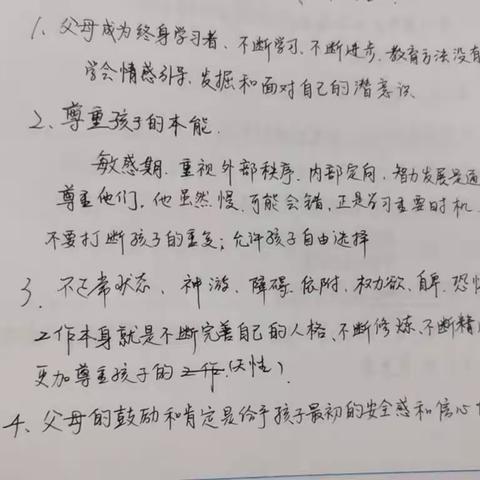 1、父母成为终身学习者、不断学习、不断进步、教育方法没有
学会情感引导、发掘和面对自己的潜意识
2、尊重孩子的本能.
敏感期、重视外部秩序、内部定向、智力发展是通
尊重他们,他虽然慢、可能会错,正是学习重要时机、
不要打断孩子的重复;允许孩子自由选择
3、不正常状态、神游、障碍、依附、权力欲、自卑、恐惧
工作本身就是不断完善自己的人格、不断修炼、不断精
更加尊重孩子的工作(天性).
4、父母的鼓励和肯定是给予孩子最初的安全感和信心